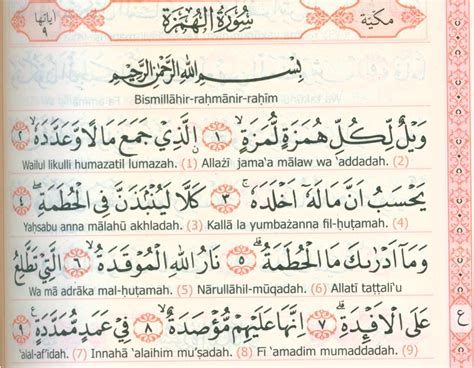 اٰيَاتُهَا ٩ سُوْرَةُ الْهُمَزَةِ مَكِّيَّة
بِسْمِ اللّٰهِ الرَّحْمٰنِ الرَّحِيْمِ
Bismillāhir-raḥmānir-raḥīm
وَيْلٌ لِّكُلِّ هُمَزَةٍ لُّمَزَةٍۙ ١ الَّذِيْ جَمَعَ مَالًا وَّعَدَّدَهٗۙ ٢
Wailul likulli humazatil lumazah. (1) Allażī jama'a mālaw wa 'addadah. (2)
يَحْسَبُ اَنَّ مَالَهٗٓ اَخْلَدَهٗۚ ٣ كَلَّا لَيُنْۢبَذَنَّ فِى الْحُطَمَةِۖ ٤
Yaḥsabu anna mālahū akhladah. (3) Kallā la yumbażanna fil-ḥuṭamah. (4)
وَمَآ اَدْرٰىكَ مَا الْحُطَمَةُۗ ٥ نَارُ اللّٰهِ الْمُوْقَدَةُۙ ٦ الَّتِيْ تَطَّلِعُ
Wa mā adrāka mal-ḥuṭamah. (5) Nārullāhil-mūqadah. (6) Allatī taṭṭali'u
عَلَى الْاَفْـِٕدَةِۗ ٧ اِنَّهَا عَلَيْهِمْ مُّؤْصَدَةٌۙ ٨ فِيْ عَمَدٍ مُّمَدَّدَةٍ ٩
'alal-af'idah. (7) Innahā 'alaihim mu'ṣadah. (8) Fī 'amadim mumaddadah. (9)
ع